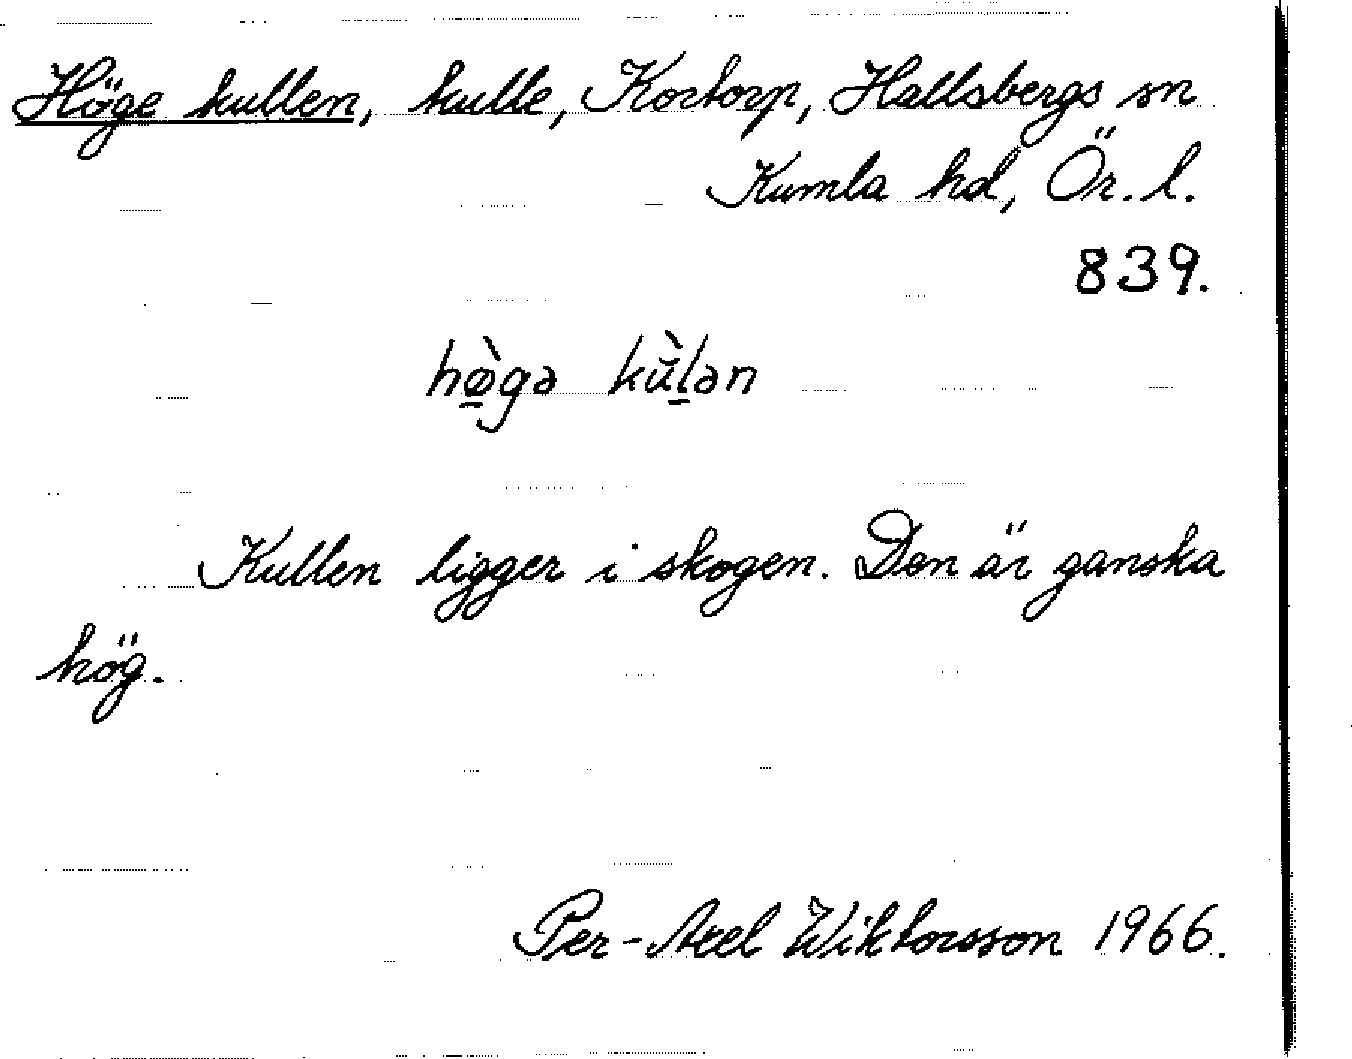 Höge kullen, kulle, Kortorp, Hallsbergs sn
Kumla hd, Ör. l.
839.
hø̠̀gə kŭ̀l̠ən
Kullen ligger i skogen. Den är ganska
hög.
Per-Axel Wiktorsson 1966.